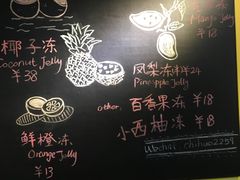 Mango Jelly
¥18
椰子冻
Coconut Jelly
¥38
凤梨冻¥24
Pineapple Jelly
other.
百香果冻 ¥18
小西柚冻 ¥18
鲜橙冻
Orange Jelly
¥13
Wechat chihuo2259